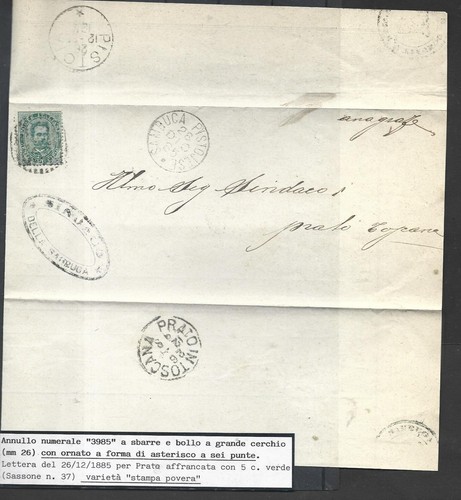 PISTO
12
anagrafe
SAMBUCA PISTOIESE
Illmo Sig Sindaco di
Prato Toscana
SINDACO
DELLA SAMBUCA
PRATO IN TOSCANA
Annullo numerale "3985" a sbarre e bollo a grande cerchio
(mm 26) con ornato a forma di asterisco a sei punte.
Lettera del 26/12/1885 per Prato affrancata con 5 c. verde
(Sassone n. 37) varietà "stampa povera"